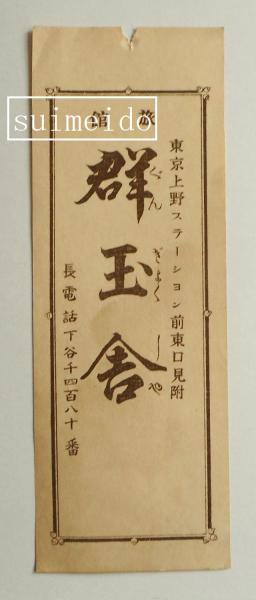 suimeido
旅館
東京上野ステーション前東口見附
群玉舎
ぐんぎよくしや
長電話下谷千四百八十番